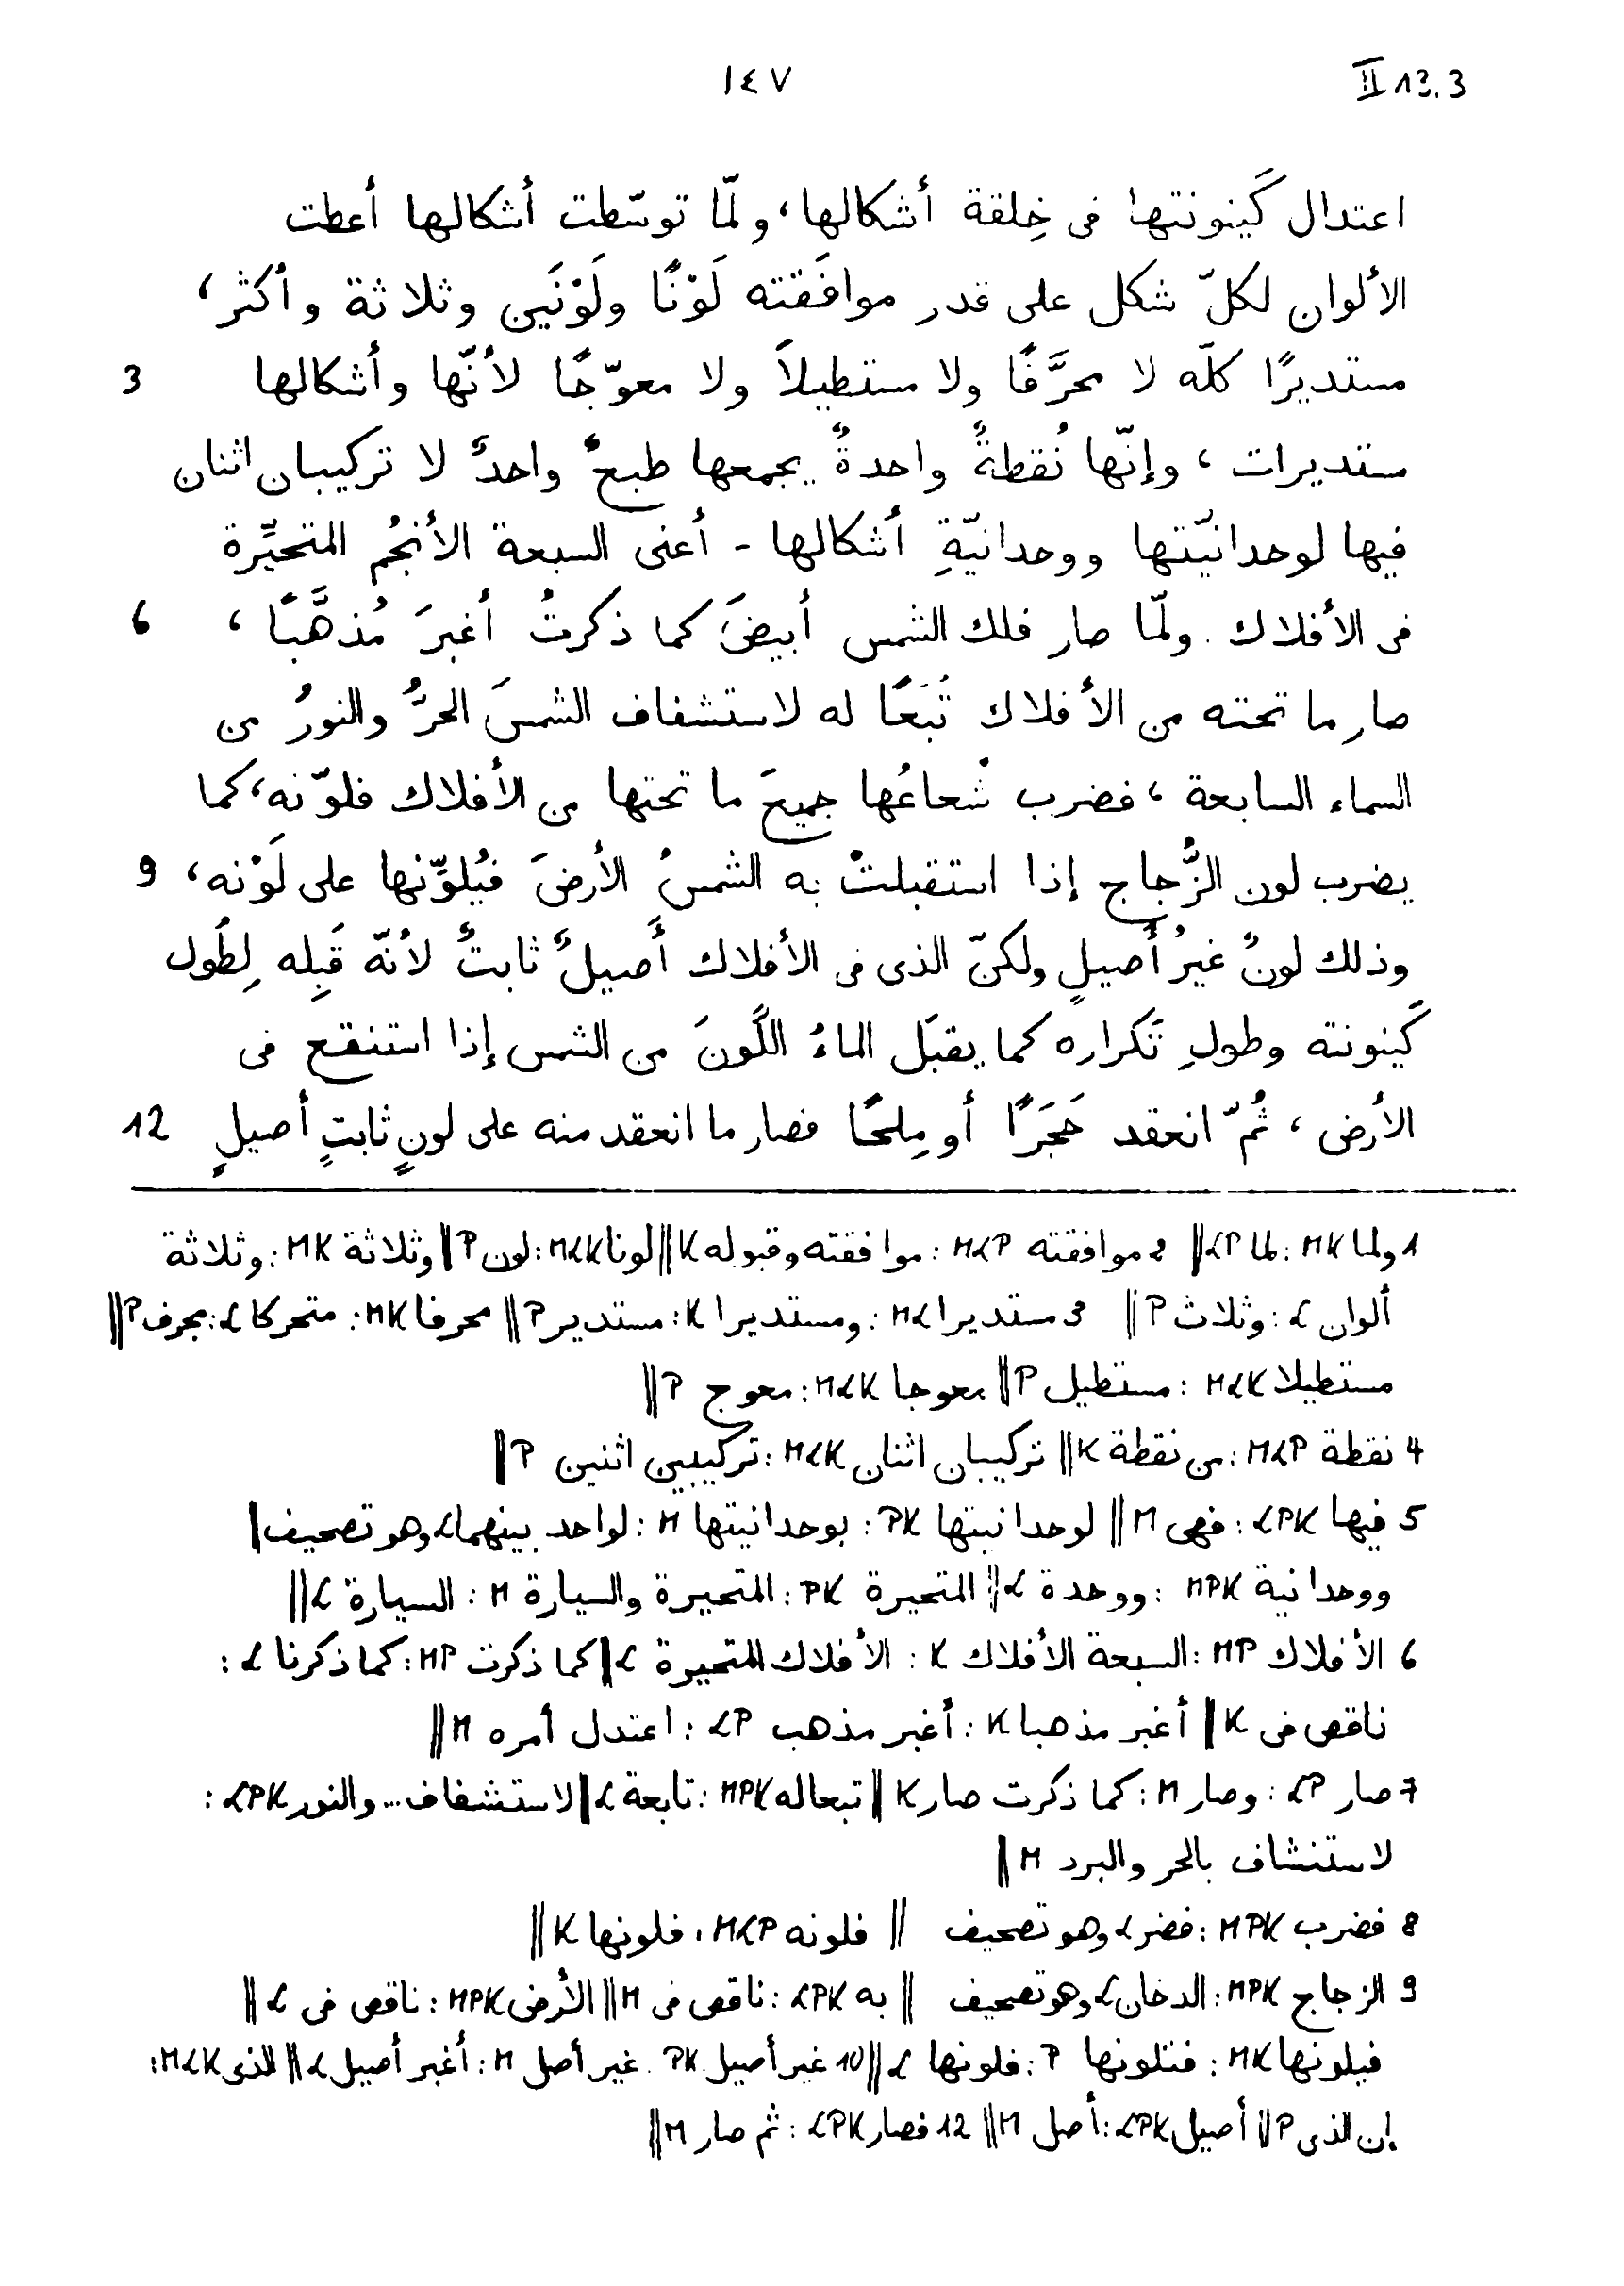 ١٤٧
II 13.3
اعتدال كَينونتها فى خِلقة أشكالها، ولمّا توسّطت أشكالها أعطت
الألوان لكلّ شكل على قدر موافَقته لَوْنًا ولَوْنَين وثلاثة وأكثر،
مستديرًا كلّه لا محرَّفًا ولا مستطيلاً ولا معوّجًا لأنّها وأشكالها 3
مستديرات، وإنّها نُقطةً واحدةً يجمعها طبعٌ واحدٌ لا تركيبان اثنان
فيها لوحدانيّتها ووحدانيّةِ أشكالها - أعنى السبعة الأنجُم المتحيِّرة
فى الأفلاك. ولمّا صار فلك الشمس أبيضَ كما ذكرتُ أغبرَ مُذهَّبًا، 6
صار ما تحته من الأفلاك تَبَعًا له لاستشفاف الشمسَ الحرُّ والنورُ من
السماء السابعة، فضرب شُعاعُها جميعَ ما تحتها من الأفلاك فلوّنه، كما
يضرب لون الزُّجاج إذا استقبلتْ به الشمسُ الأرضَ فيُلوِّنها على لَوْنه، 9
وذلك لونٌ غيرُ أصيلٍ ولكنّ الذى فى الأفلاك أصيلٌ ثابتٌ لأنّه قَبِله لِطُول
كَينونته وطولِ تَكراره كما يقبَل الماءُ اللَّونَ من الشمس إذا استنقع فى
الأرض، ثُمّ انعقد حَجَرًا أو مِلحًا فصار ما انعقد منه على لونٍ ثابتٍ أصيلٍ 12
1 ولما MK: لما LP‖ 2 موافقته MLP: موافقته وقبوله K‖ لونا MLK: لون P‖ وثلاثة MK: وثلاثة
ألوان L: وثلاث P‖ 3 مستديرا ML: ومستديرا K: مستدير P‖ محرفا MK: متحركا L: مجرف P‖
مستطيلا MLK: مستطيل P‖ معوجا MLK: معوج P‖
4 نقطة MLP: من نقطة K‖ تركيبان اثنان MLK: تركيبين اثنين P‖
5 فيها LPK: فهى M‖ لوحدانيتها PK: بوحدانيتها M: لواحد بينهما L وهو تصحيف‖
ووحدانية MPK: ووحدة L‖ المتحيرة PK: المتحيرة والسيارة M: السيارة L‖
6 الأفلاك MP: السبعة الأفلاك K: الأفلاك المتحيرة L‖ كما ذكرت MP: كما ذكرنا L:
ناقص فى K‖ أغبر مذهبا K: أغبر مذهب LP: اعتدل أمره M‖
7 صار LP: وصار M: كما ذكرت صار K‖ تبعا له MPK: تابعة L‖ لاستشفاف... والنور LPK:
لاستنشاف بالحر والبرد M‖
8 فضرب MPK: فضر L وهو تصحيف ‖ فلونه MLP: فلونها K‖
9 الزجاج MPK: الدخان L وهو تصحيف ‖ به LPK: ناقص فى M‖ الأرض MPK: ناقص فى L‖
فيلونها MK: فتلونها P: فلونها L‖ 10 غير أصيل PK: غير أصل M: أغبر أصيل L‖ الذى MLK:
إن الذى P‖ أصيل LPK: أصل M‖ 12 فصار LPK: ثم صار M‖